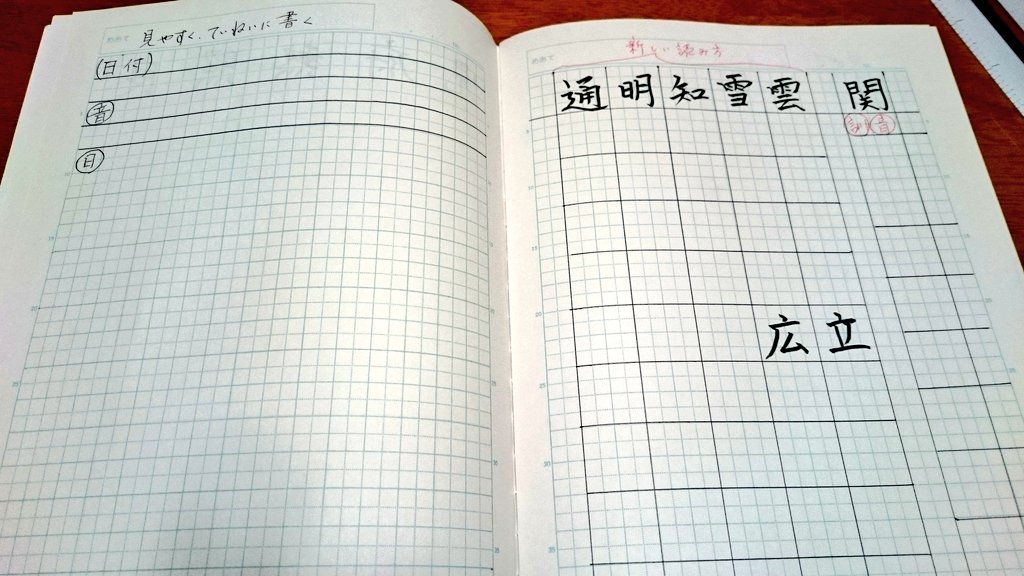 見やすく、ていねいに書く
(日付)
音
日
新しい読み方
通明知雪雲 関
音
広立